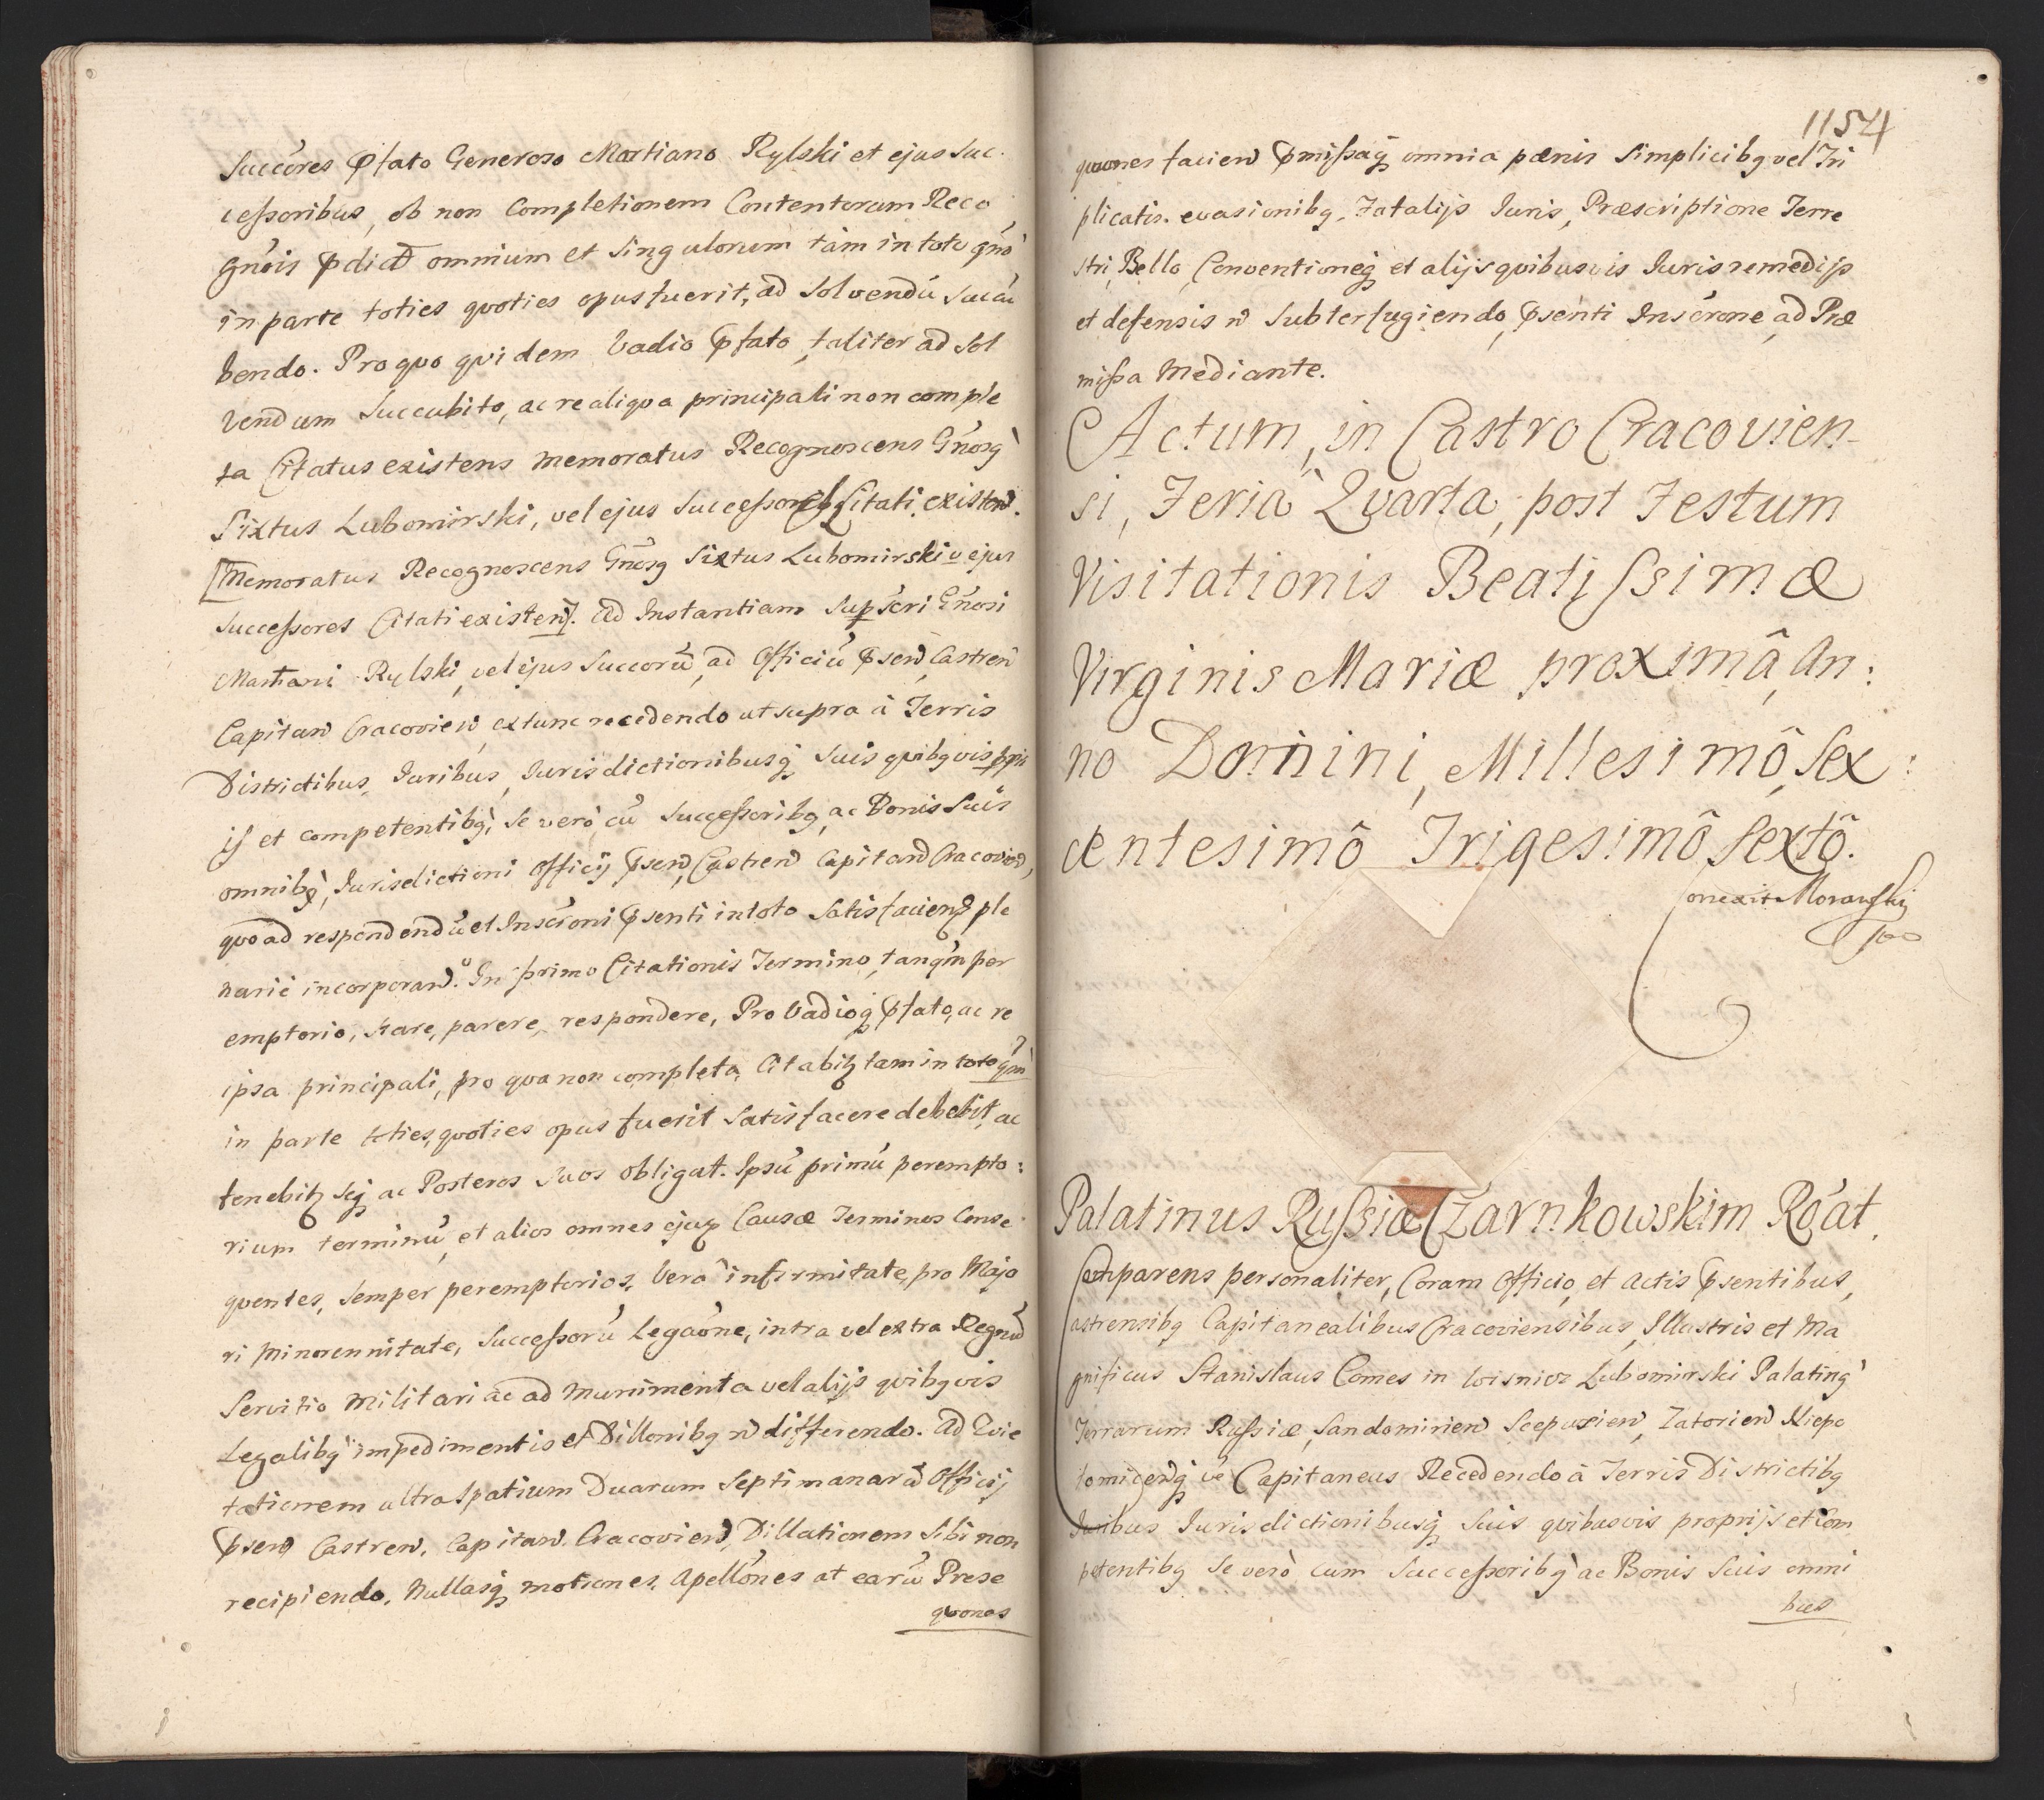 Succôres ꝑfato Generoso Martiano Rylski et ejus Suc-
cessoribus, ob non Completionem Contentorum Reco
gnôis ꝑdict omnium et Singulorum tàm in toto qm̃
in parte toties quoties opus fuerit, ad Solvendū Succū
bendo. Pro quo quidem Vadio ꝑfato, taliter ad Sol
vendum Succubito, ac re aliqva principali non comple
ta Citatus existens memoratus Recognoscens Gñosq
Sixtus Lubomirski, vel ejus Successores Citati existen.
[Memoratus Recognoscens Gñosq Sixtus Lubomirski v ejus
Successores Citati existen]. Ad Instantiam Supscri Gñosi
Martiani Rylski, vel ejus Succorū, ad Officiū ꝑsen Castren
Capitan Cracovien, extunc recedendo ut supra à Terris
Districtibus, Juribus, Jurisdictionibusq, Suis qvibqvis ppri
is et competentibq, Se verò cū Successoribq, ac Bonis Suis
omnibq, Jurisdictioni Officij ꝑsen, Castren Capitan Cracovien,
quo ad respondendū et Inscrôni ꝑsenti in toto Satisfacien ple
narie incorporan. In primo Citationis Termino, tanqm̃ per
emptorio, stare, parere, respondere, Pro Vadioq ꝑfato, ac re
ipsa principali, pro qva non completa, Citabitꝶ tam in toto qm̃
in parte toties, qvoties opus fuerit Satisfacere debebit, ac
tenebitꝶ Seq ac Posteros Suos obligat. Ipsū primū perempto:
rium terminū, et alios omnes ejus Causæ Terminos Conse
qventes, Semper peremptorios, Verâ infirmitate, pro Majo
ri Minorennitate, Successorū Legaône, intra vel extra Regnū
Servitio Militari ac ad Munimenta vel alijs qvibqvis
Legalibq impedimentis et Dillonibq ñ differendo. Ad Evic
tationem ultra Spatium Duarum Septimanarū Officij
ꝑsen Castren. Capitan. Cracovien, Dillationem Sibi non
recipiendo, Nullasq motiones, Apellônes at earū Prose
qvones
1154
qvones facien ꝑmissaq omnia pœnis Simplicibq vel Tri
plicatis. evasionibq, Fatalijs Juris, Præscriptione Terre
stri, Bello, Conventioneq et alijs qvibusvis Juris remedijs
et defensis ñ Subterfugiendo, ꝑsenti Inscrône, ad Præ
missa Mediante.
Actum, in Castro Cracovien-
si, Feria Qvarta, post Festum
Visitationis Beatissimæ
Virginis Mariæ proximâ, An:
no Domini, Millesimô, Sex:
centesimô Trigesimô Sextô.
Conexit Morawski
Palatinus Russiæ Czarnkowskim Rôat.
Comparens personaliter, Coram Officio, et Actis ꝑsentibus,
Castrensibq Capitanealibus Cracoviensibus, Illustris et Ma
gnificus Stanislaus Comes in Wisnicz Lubomirski Palatinq
Terrarum Russiæ, Sandomirien Scepusien, Zatorien Niepo
lomicenq ūe Capitaneus Recedendo à Terris Districtibq
Juribus Jurisdictionibusq Suis qvibusvis proprijs et Com
petentibq Se verò cum Successoribq ac Bonis Suis omni
bus